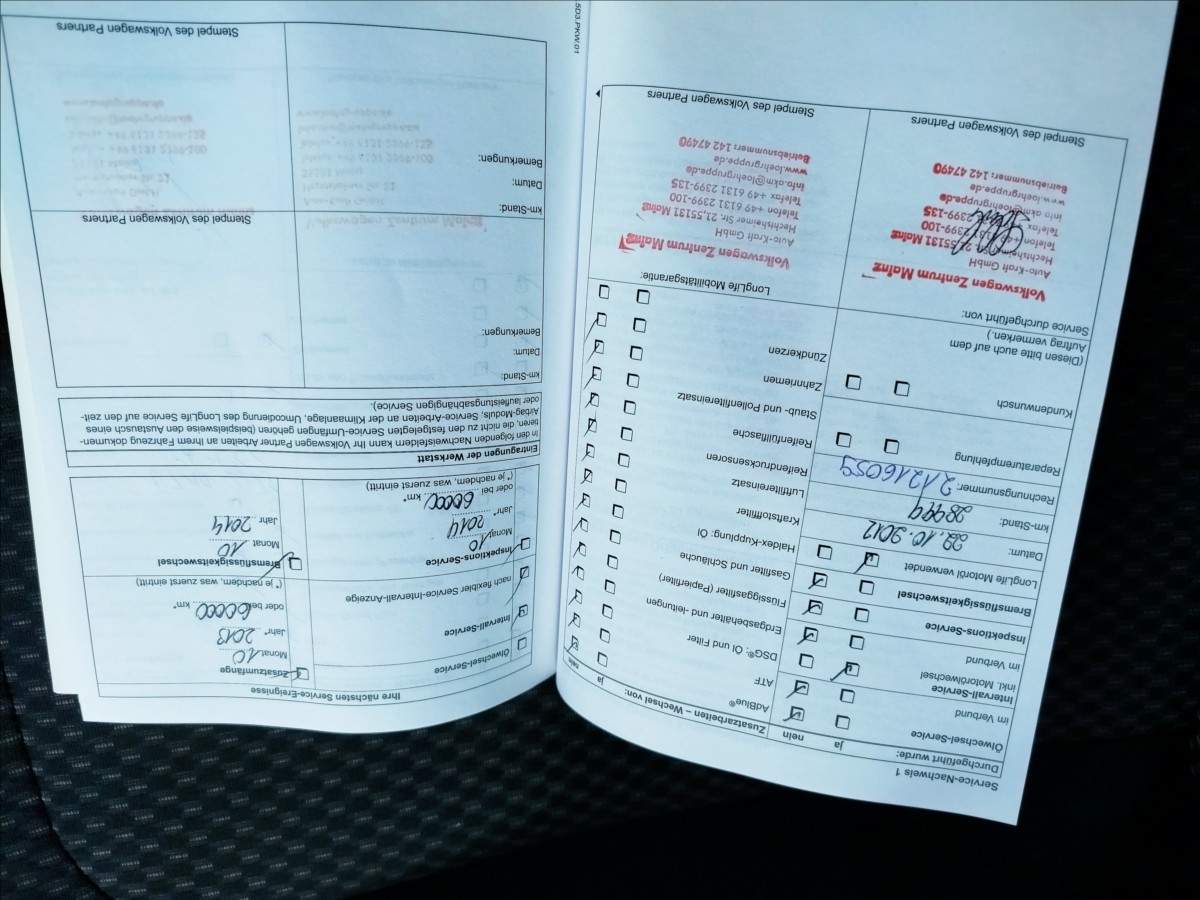 Service-Nachweis 1
Durchgeführt wurde:
ja nein
Ölwechsel-Service
im Verbund
Intervall-Service
inkl. Motorölwechsel
im Verbund
Inspektions-Service
Bremsflüssigkeitswechsel
LongLife Motoröl verwendet
Datum: 22.10.2012
km-Stand:
Rechnungsnummer: 21216059
Reparaturempfehlung
Kundenwunsch
(Diesen bitte auch auf dem
Auftrag vermerken.)
Service durchgeführt von:
Volkswagen Zentrum Mainz
Auto-Kraft GmbH
Hechtsheimer Str. 21, 55131 Mainz
Telefon +49 6131 2399-100
Telefax 2399-135
info akm@loehrgruppe.de
www.loehrgruppe.de
Betriebsnummer: 142 47490
Stempel des Volkswagen Partners
Zusatzarbeiten – Wechsel von:
ja nein
AdBlue®
ATF
DSG®: Öl und Filter
Erdgasbehälter und -leitungen
Flüssiggasfilter (Papierfilter)
Gasfilter und Schläuche
Haldex-Kupplung: Öl
Kraftstofffilter
Luftfiltereinsatz
Reifendrucksensoren
Reifenfüllflasche
Staub- und Pollenfiltereinsatz
Zahnriemen
Zündkerzen
LongLife Mobilitätsgarantie:
Volkswagen Zentrum Mainz
Auto-Kraft GmbH
Hechtsheimer Str. 21, 55131 Mainz
Telefon +49 6131 2399-100
Telefax +49 6131 2399-135
info.akm@loehrgruppe.de
www.loehrgruppe.de
Betriebsnummer: 142 47490
Stempel des Volkswagen Partners
503.PKW.01
Ihre nächsten Service-Ereignisse
Ölwechsel-Service
Intervall-Service
nach flexibler Service-Intervall-Anzeige
Inspektions-Service
Monat 10
Jahr* 2014
oder bei 60000 km*
(* je nachdem, was zuerst eintritt)
Zusatzumfänge
Monat 10
Jahr* 2013
oder bei 60000 km*
(* je nachdem, was zuerst eintritt)
Bremsflüssigkeitswechsel
Monat 10
Jahr 2014
Eintragungen der Werkstatt
In den folgenden Nachweisfeldern kann Ihr Volkswagen Partner Arbeiten an Ihrem Fahrzeug dokumen-
tieren, die nicht zu den festgelegten Service-Umfängen gehören (beispielsweise den Austausch eines
Airbag-Moduls, Service-Arbeiten an der Klimaanlage, Umcodierung des LongLife Service auf den zeit-
oder laufleistungsabhängigen Service).
km-Stand:
Datum:
Bemerkungen:
Stempel des Volkswagen Partners
km-Stand:
Datum:
Bemerkungen:
Stempel des Volkswagen Partners